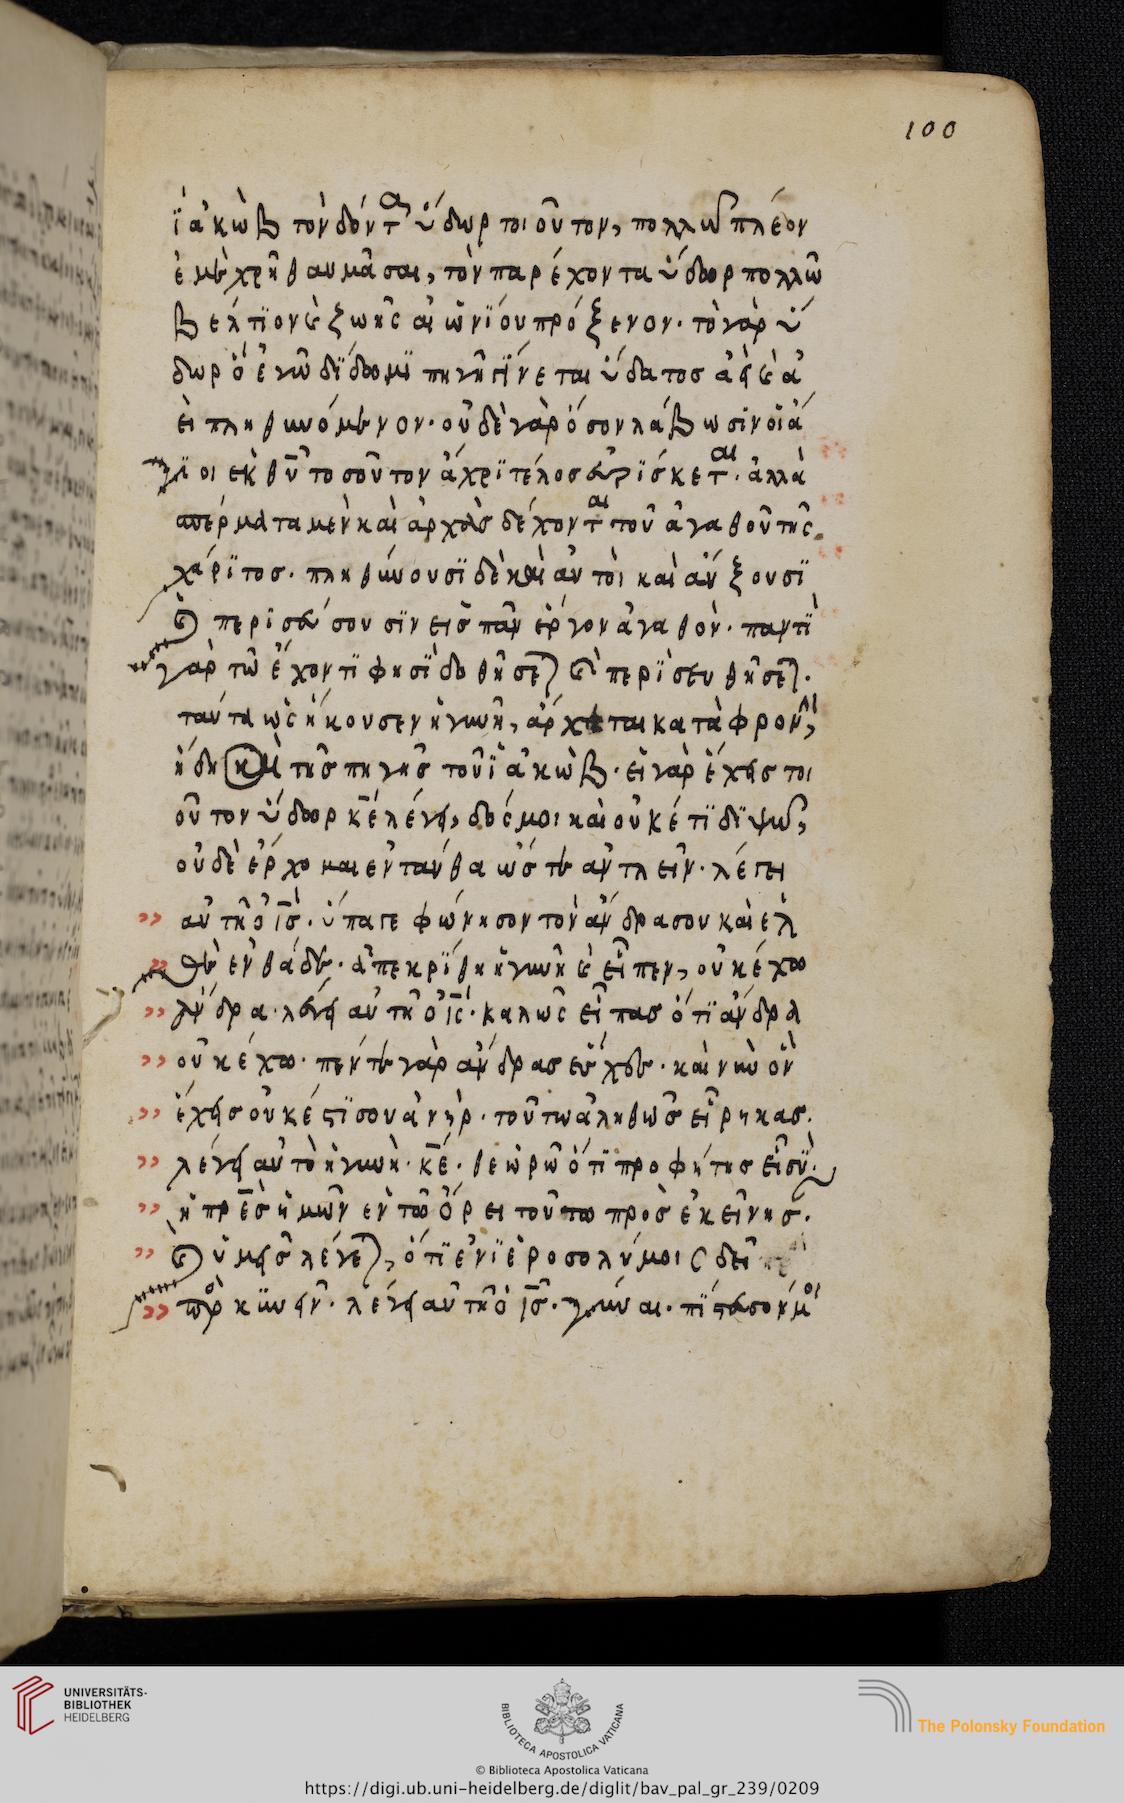 100
ϊακὼβ τὸν δόντα ὕδωρ τοιοῦτον, πολλῶ πλέον
ἐμὲ χρὴ θαυμᾶσαι, τὸν παρέχοντα ὕδωρ πολλῶ
βελτϊον καὶ ζωῆς αἰωνϊου πρόξενον. τὸ γὰρ ὕ
δωρ ὃ ἐγὼ δϊδωμϊ πηγὴ γϊνεται ὕδατος ἀεὶ καὶ ἀ
εὶ πληθυνόμενον. οὐδὲ γὰρ ὅσον λάβωσϊν οἱ ἅ
γϊοι ἐκ θυ τοσοῦτον ἄχρϊ τέλος εὑρϊσκεται. ἀλλὰ
σπέρματα μὲν καὶ ἀρχὰς δέχονται τοῦ ἀγαθοῦ τῆς
χάρϊτος. πληθύνουσϊ δὲ καὶ αὐτοὶ καὶ αὔξουσϊ
καὶ περϊσεύσουσϊν εἰς πᾶν ἔργον ἀγαθὸν. παντϊ
γὰρ τῶ ἔχοντϊ φησϊ δοθήσεται καὶ περϊσευθήσεται.
ταύτα ὡς ἤκουσεν ἡ γυνὴ, ἄρχεται καταφρονεῖν,
ἤδη καὶ τῆς πηγῆς τοῦ ϊακὼβ. εἰ γὰρ ἔχεις τοι
οῦτον ὕδωρ κε λέγει, δός μοι καὶ οὐκέτϊ δϊψῶ,
οὐδὲ ἔρχομαι ἐνταύθα ὥστε ἀντλεῖν. λέγει
αὐτῆ ὁ ις. ὕπαγε φώνησον τὸν ἄνδρα σου καὶ ἐλ
θὲ ἐνθάδε. ἀπεκρίθη ἡ γυνὴ καὶ εἶπεν, οὐκ ἔχω
ἄνδρα. λέγει αὐτῆ ὁ ις. καλῶς εἶπας ὅτϊ ἄνδρα
οὐκ ἔχω. πέντε γὰρ ἄνδρας ἔσχες. καὶ νῦν ὃν
ἔχεις οὐκ ἔστϊ σου ἀνὴρ. τοῦτω ἀληθῶς εἴρηκας.
λέγει αὐτὸ ἡ γυνὴ. κε. θεωρῶ ὅτϊ προφήτης εἶ σὺ.
ἡ πρες ἡμῶν ἐν τῶ ὄρει τοῦτω προσεκείνησ.
καὶ ὑμεῖς λέγεται, ὅτϊ ἐν ϊεροσολύμοις δεῖ
προσκϋνεῖν. λέγει αὐτῆ ὁ ις. γύναι. πϊστευσόν μοι
UNIVERSITÄTS-
BIBLIOTHEK
HEIDELBERG
BIBLIOTECA APOSTOLICA VATICANA
The Polonsky Foundation
© Biblioteca Apostolica Vaticana
https://digi.ub.uni-heidelberg.de/diglit/bav_pal_gr_239/0209